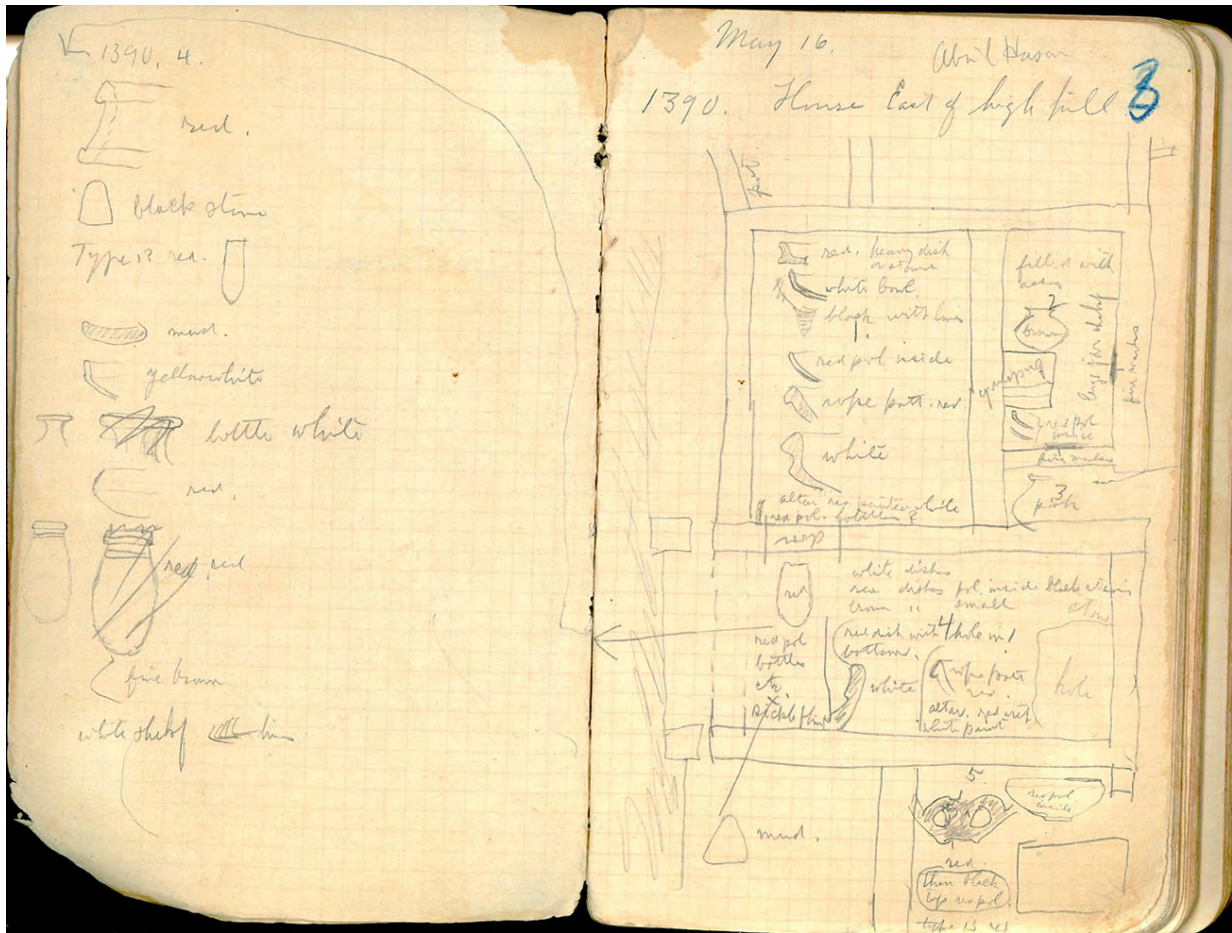 1390. 4.
red.
black stone
Type 13 red.
mud.
yellow white
bottle white
red.
red red
fine brown
white
May 16.
Abu'l Hasan
3
1390. House East of high fill
pot
red. heavy dish
or stand
white bowl
black with lines
red pol inside
rope patt. red
white
altar red painted white
red pol. bottles ?
filled with
ashes
2
brown
large jar shelf
red pol
inside
3
pink
red
white dishes
red dishes pol. inside black
brown " small
red pol
bottles
etc.
sickle flint
red dish with 4 hole in
bottom.
white
rope patt
red.
altar. red
white paint
hole
mud.
5.
red pol
inside
red.
thin black
top red pol.
type 13 red